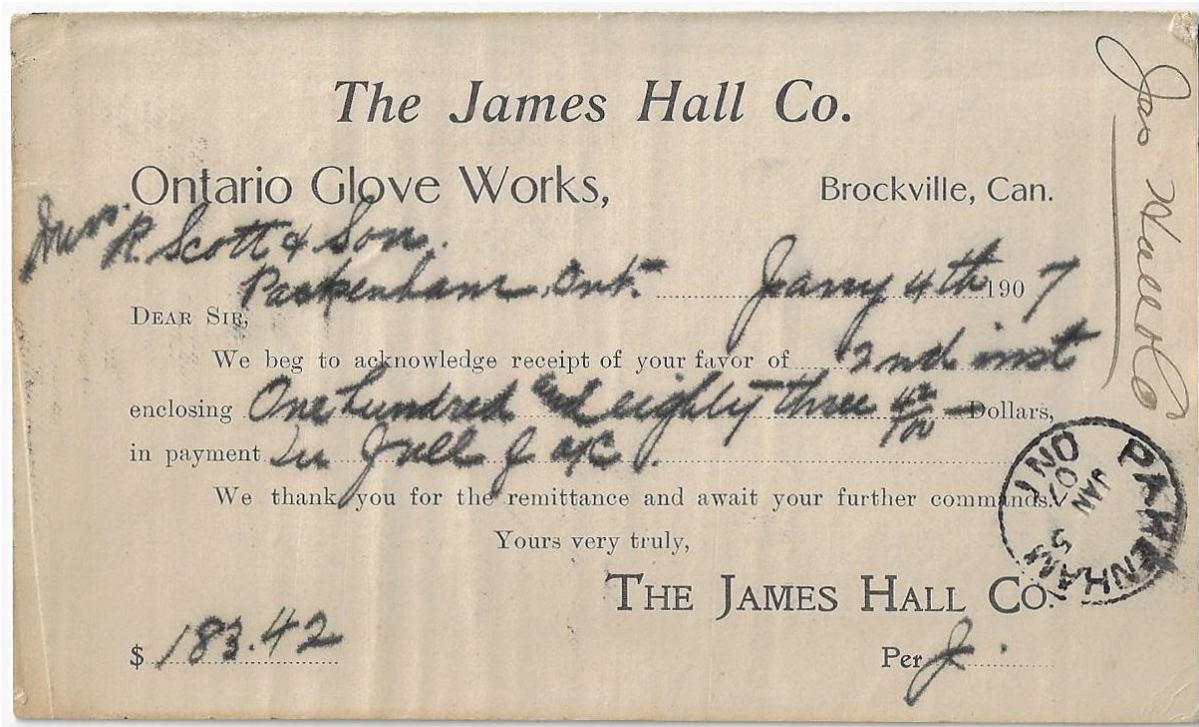 The James Hall Co.
Ontario Glove Works, Brockville, Can.
R. Scott & Son.
Pakenham, Ont. Jany 4th 1907
DEAR SIR,
We beg to acknowledge receipt of your favor of 2nd inst
enclosing One hundred and eighty three 42/100 Dollars,
in payment In full of a/c.
We thank you for the remittance and await your further commands.
Yours very truly,
THE JAMES HALL CO.
$ 183.42 Per J.
Jas Hall Co
PAKENHAM
JAN 5
07
ONT